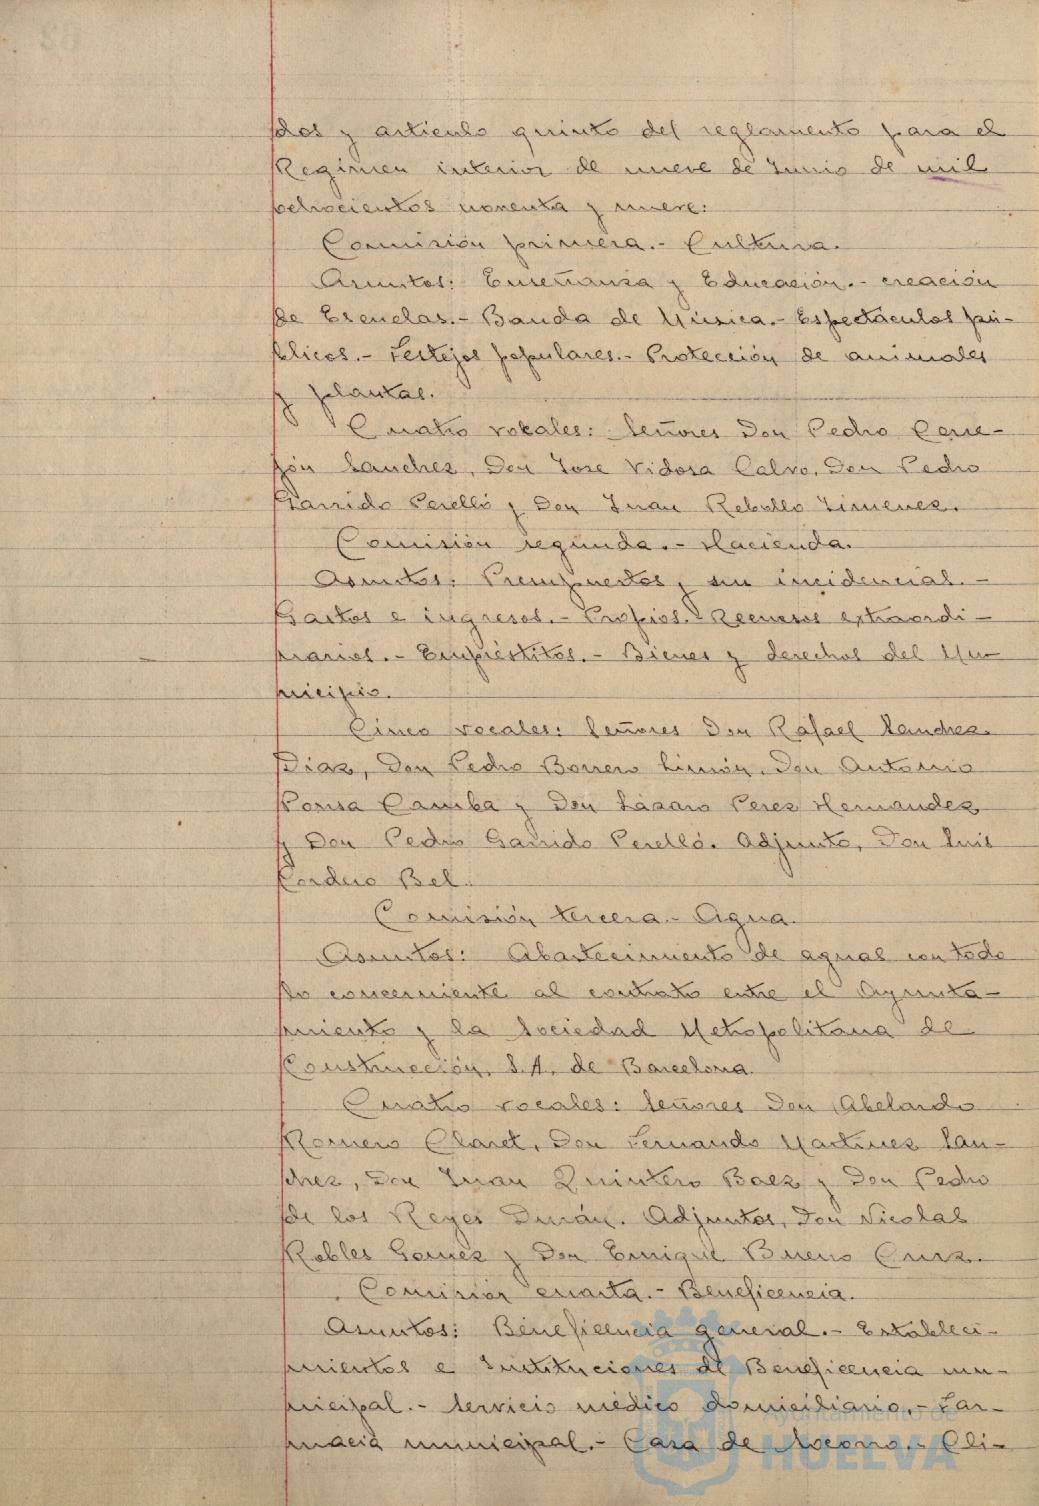 dos y artículo quinto del reglamento para el
Regimen interior de nueve de Junio de mil
ochocientos noventa y nueve:
Comisión primera.- Cultura.
Asuntos: Enseñanza y Educación.- creación
de Escuelas.- Banda de Música.- Espectáculos pú-
blicos.- Festejos populares.- Protección de animales
y plantas.
Cuatro vocales: Señores Don Pedro Cerre-
jón Sanchez, Don Jose Vidosa Calvo, Don Pedro
Garrido Perelló y Don Juan Rebollo Jimenez.
Comisión segunda.- Hacienda.
Asuntos: Presupuestos, sus incidencias.-
Gastos e ingresos.- Propios.- Recursos extraordi-
narios.- Empréstitos.- Bienes y derechos del Mu-
nicipio.
Cinco vocales: Señores Don Rafael Sanchez
Diaz, Don Pedro Borrero Limón, Don Antonio
Ponsa Camba y Don Lázaro Perez Hernandez
y Don Pedro Garrido Perelló. Adjunto, Don Luis
Cordero Bel.
Comisión tercera.- Agua.
Asuntos: Abastecimiento de aguas con todo
lo concerniente al contrato entre el Ayunta-
miento y la Sociedad Metropolitana de
Construcción, S.A. de Barcelona.
Cuatro vocales: Señores Don Abelardo
Romero Claret, Don Fernando Martinez San-
chez, Don Juan Quintero Baez y Don Pedro
de los Reyes Durán. Adjuntos, Don Nicolas
Robles Gomez y Don Enrique Bueno Cruz.
Comisión cuarta.- Beneficencia.
Asuntos: Beneficencia general.- Estableci-
mientos e Instituciones de Beneficencia mu-
nicipal.- Servicio médico domiciliario.- Far-
macia municipal.- Casa de Socorro.- Cli-
Ayuntamiento de
HUELVA